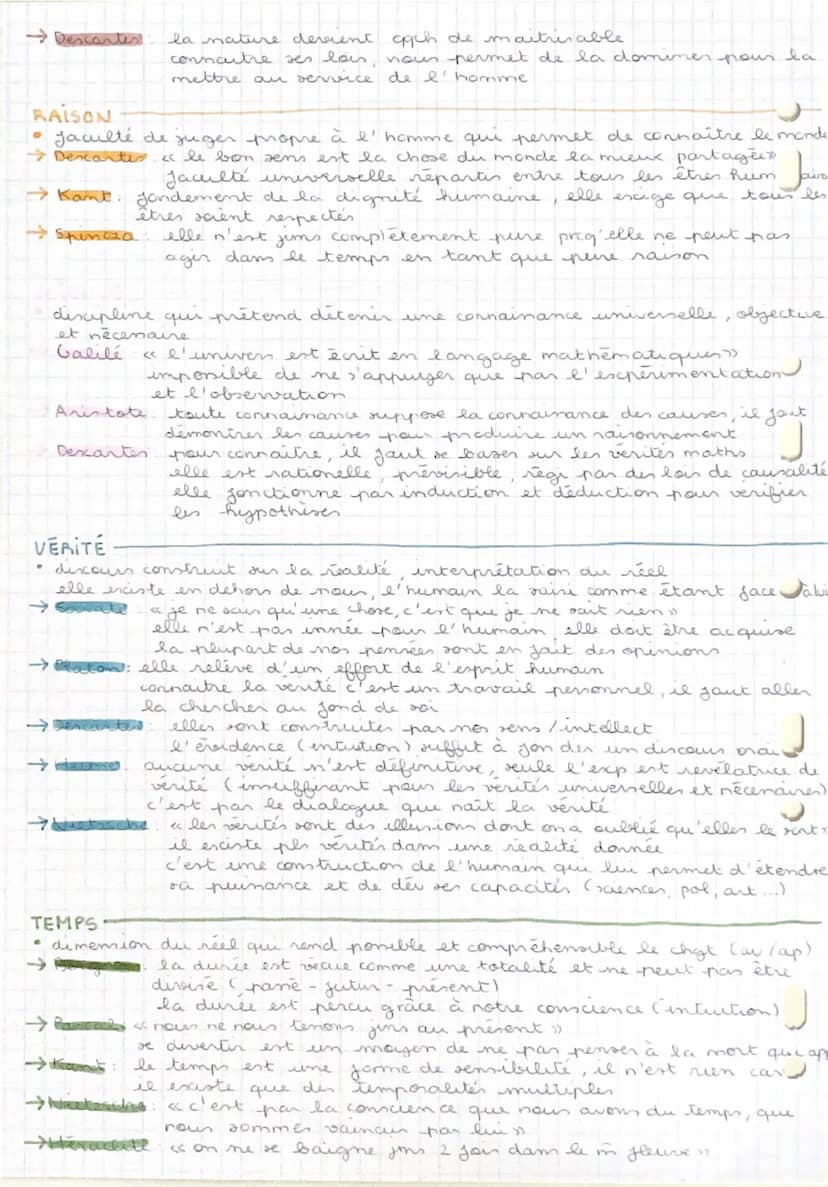 → Descartes : la nature devient qqch de maitrisable
connaitre ses lois, nous permet de la dominer pour la
mettre au service de l'homme
RAISON
• faculté de juger propre à l'homme qui permet de connaître le monde
→ Descartes « le bon sens est la chose du monde la mieux partagée »
faculté universelle répartis entre tous les êtres hum ains
→ Kant : fondement de la dignité humaine, elle exige que tous les
êtres soient respectés
→ Spinoza : elle n'est jms complètement pure prcq'elle ne peut pas
agir dans le temps en tant que pure raison
discipline qui prétend détenir une connaissance universelle, objective
et nécessaire
Galilé « l'univers est écrit en langage mathématiques »
impossible de ne s'appuyer que par l'expérimentation
et l'observation
Aristote : toute connaissance suppose la connaissance des causes, il faut
démontrer les causes pour produire un raisonnement
Descartes pour connaître, il faut se baser sur les vérités maths
elle est rationelle, prévisible, régi par des lois de causalité
elle fonctionne par induction et déduction pour vérifier
les hypothèses
VÉRITÉ
• discours construit sur la réalité, interprétation du réel
elle existe en dehors de nous, l'humain la saisi comme étant face à lui
→ Socrate : « je ne sais qu'une chose, c'est que je ne sait rien »
elle n'est pas innée pour l'humain, elle doit être acquise
la plupart de nos pensées sont en fait des opinions
→ Platon : elle relève d'un effort de l'esprit humain
connaitre la vérité c'est un travail personnel, il faut aller
la chercher au fond de soi
→ Descartes : elles sont construites par nos sens / intellect
l'évidence (intution) suffit à fon der un discours vrai
→ Hume : aucune vérité n'est définitive, seule l'exp est revélatrice de
vérité (insuffisant pour les vérités universelles et nécessaires)
c'est par le dialogue que naît la vérité
→ Nietzsche : « les vérités sont des illusions dont on a oublié qu'elles le sont »
il existe pls vérités dans une réalité donnée
c'est une construction de l'humain qui lui permet d'étendre
sa puissance et de dév ses capacités (sciences, pol, art ...)
TEMPS
• dimension du réel qui rend possible et compréhensible le chgt (av/ap)
→ Bergson : la durée est vécue comme une totalité et ne peut pas être
divisé (passé - futur - présent)
la durée est percu grâce à notre conscience (intuition)
→ Pascal « nous ne nous tenons jms au présent »
se divertir est un moyen de ne pas penser à la mort qui app
→ Kant : le temps est une forme de sensibilité, il n'est rien car
il existe que des temporalités multiples
→ Nietzsche : « c'est par la conscience que nous avons du temps, que
nous sommes vaincus par lui »
→ Héraclite « on ne se baigne jms 2 fois dans le m̂ fleuve »